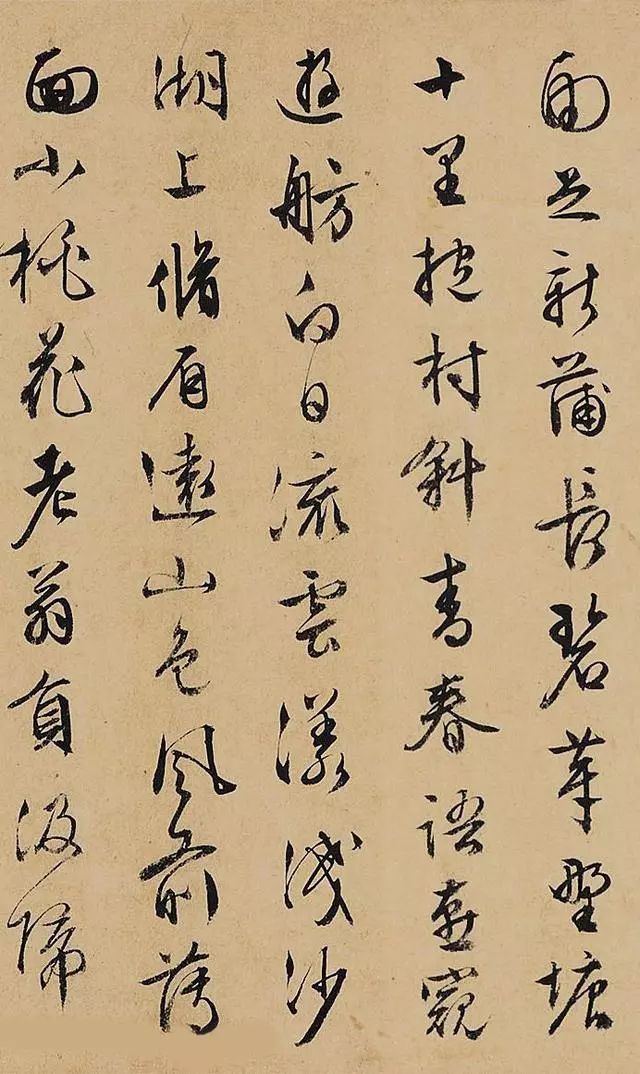 雨足新蒲長碧芽野塘
十里抱村斜青春語燕窺
遊舫白日流雲漾淺沙
湖上脩眉遠山色風前薄
面小桃花老翁負汲歸